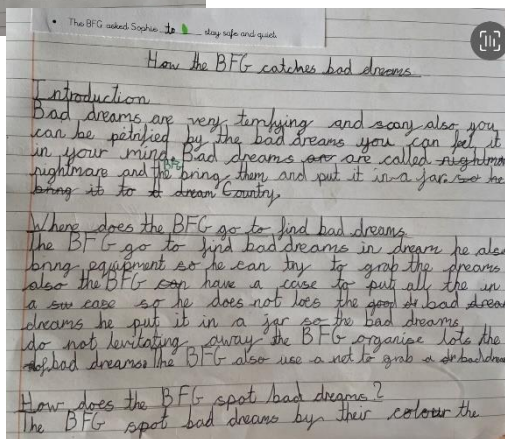 • The BFG asked Sophie to stay safe and quiet.
How the BFG catches bad dreams
Introduction
Bad dreams are very terrifying and scary also you
can be petrified by the bad dreams you can feel it
in your mind. Bad dreams are are called nightmar
nightmare and the bring them and put it in a jar so he
bring it to dream Country.
Where does the BFG go to find bad dreams
The BFG go to find bad dreams in dream he also
bring equipment so he can try to grab the dreams
also the BFG can have a case to put all the in
a su case so he does not loes the good or bad drea
dreams he put it in a jar so the bad dreams
do not levitating away the BFG organise lots the
of bad dreams. The BFG also use a net to grab a or bad drea
How does the BFG spot bad dreams?
The BFG spot bad dreams by their colour the